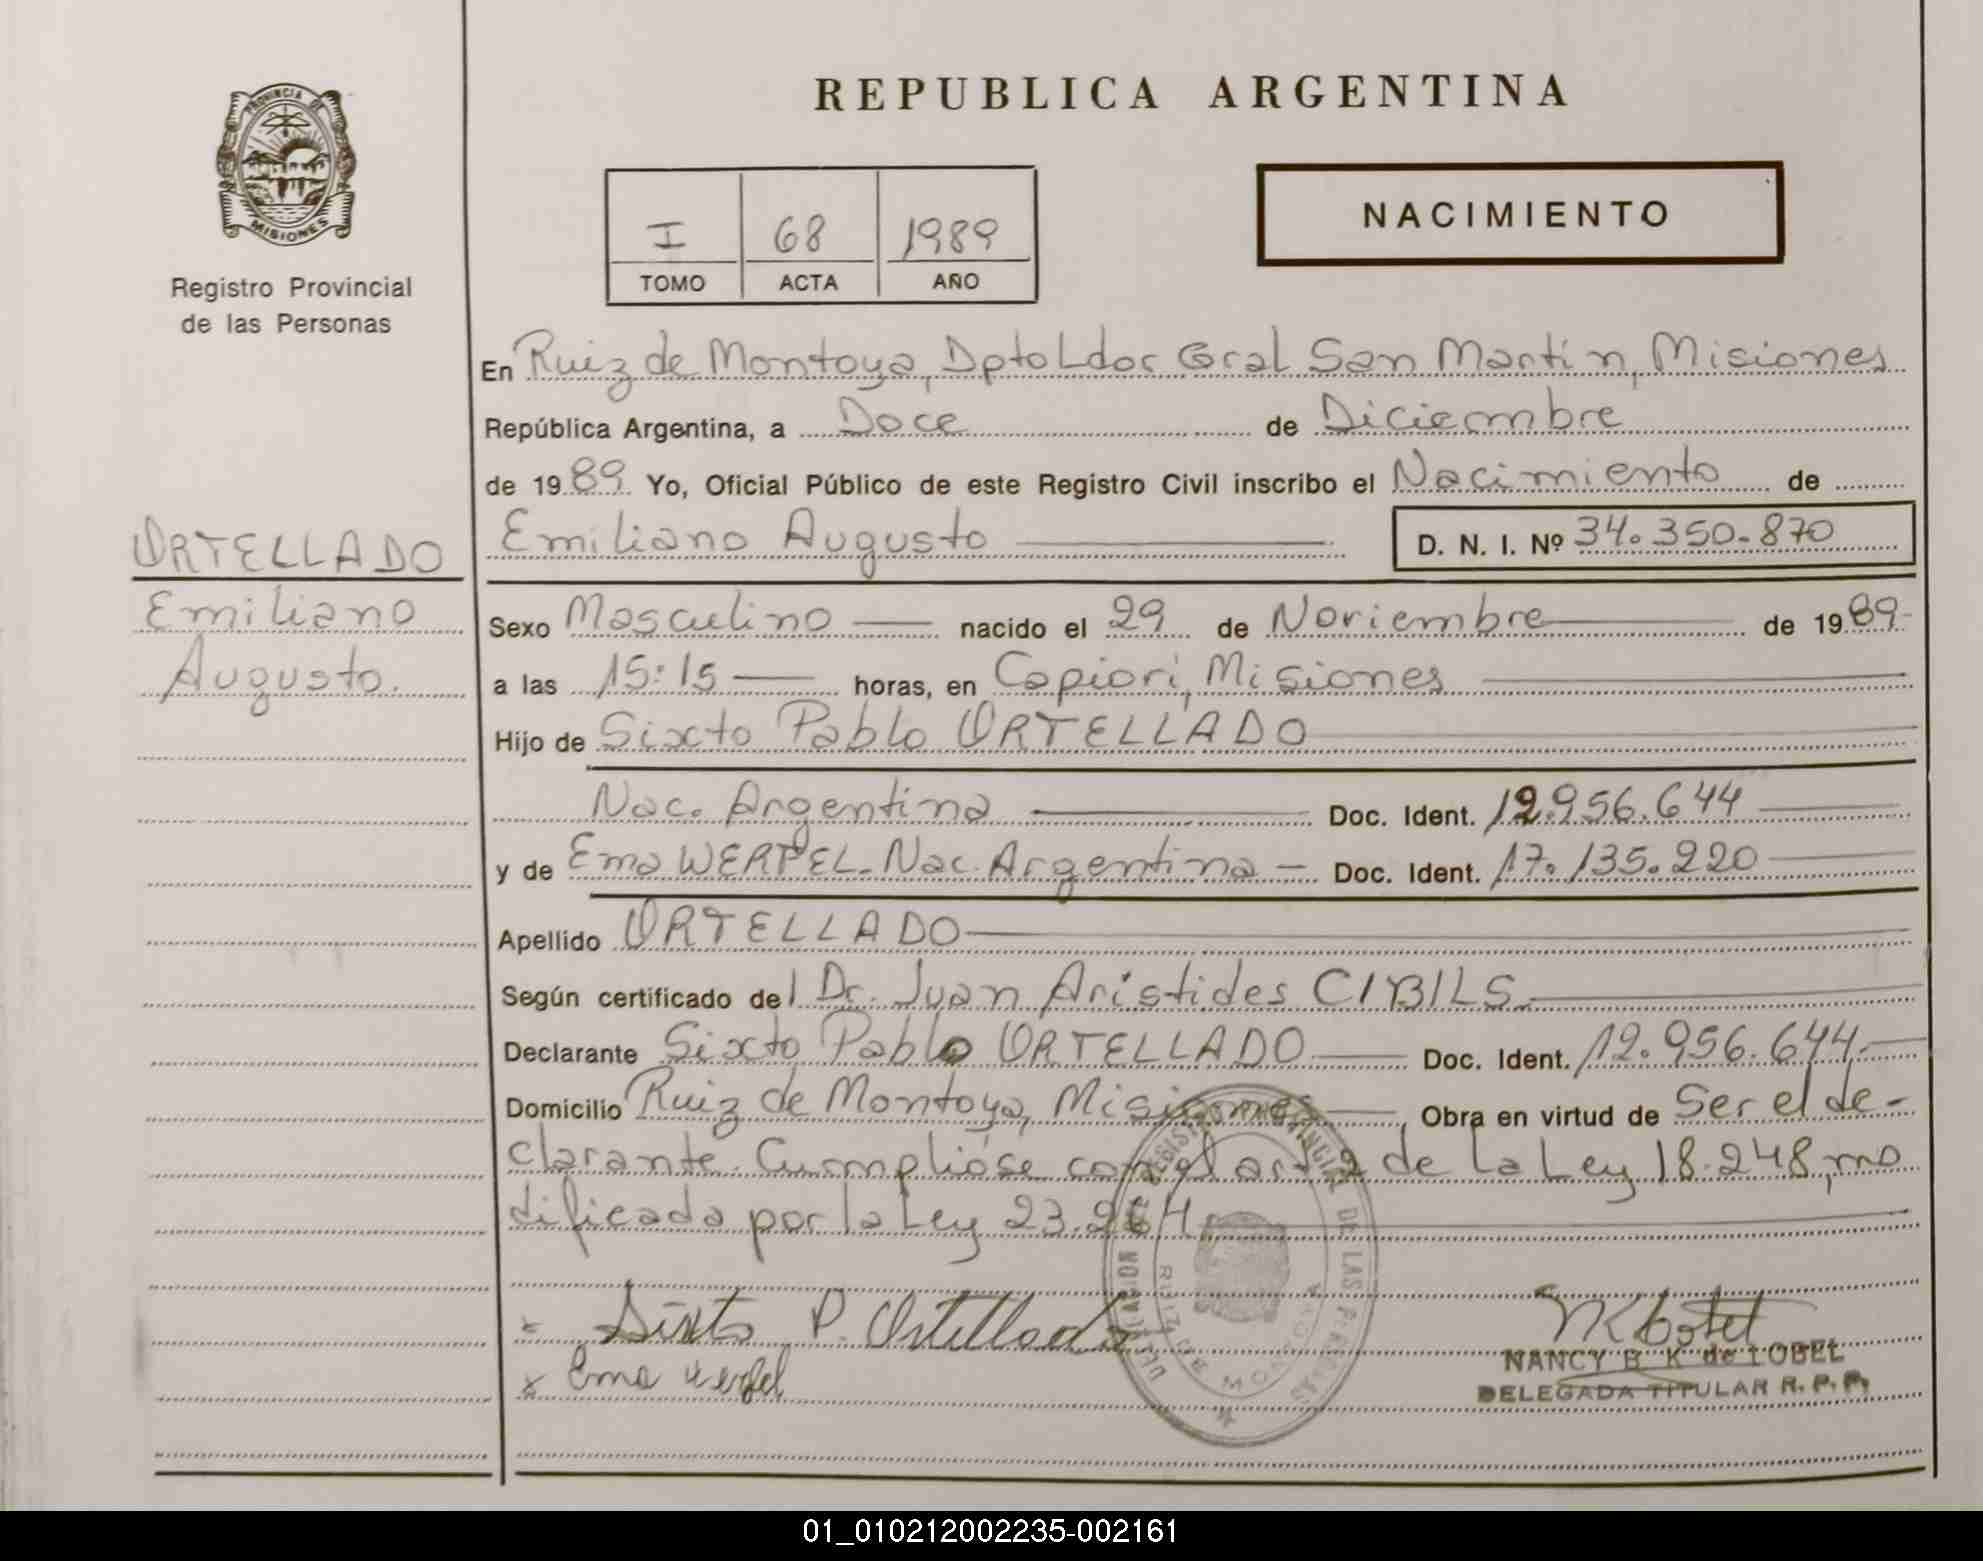 PROVINCIA DE
MISIONES
Registro Provincial
de las Personas
REPUBLICA ARGENTINA
I 68 1989
TOMO ACTA AÑO
NACIMIENTO
En Ruiz de Montoya, Dpto Ldor Gral San Martín, Misiones
República Argentina, a Doce de Diciembre
de 1989 Yo, Oficial Público de este Registro Civil inscribo el Nacimiento de
ORTELLADO
Emiliano
Augusto.
Emiliano Augusto D. N. I. Nº 34.350.870
Sexo Masculino nacido el 29 de Noviembre de 1989
a las 15:15 horas, en Capioví, Misiones
Hijo de Sixto Pablo ORTELLADO
Nac. Argentina Doc. Ident. 12.956.644
y de Ema WERPEL. Nac. Argentina Doc. Ident. 17.135.220
Apellido ORTELLADO
Según certificado del Dr. Juan Arístides CIBILS
Declarante Sixto Pablo ORTELLADO Doc. Ident. 12.956.644
Domicilio Ruiz de Montoya, Misiones Obra en virtud de Ser el de-
clarante. Cumplióse con el art 2 de la Ley 18.248, mo
dificada por la Ley 23.264
x Sixto P. Ortellado
x Ema Werpel
REGISTRO PROVINCIAL DE LAS PERSONAS
NANCY B. K de LOBEL
DELEGADA TITULAR R. P. P.
01_010212002235-002161